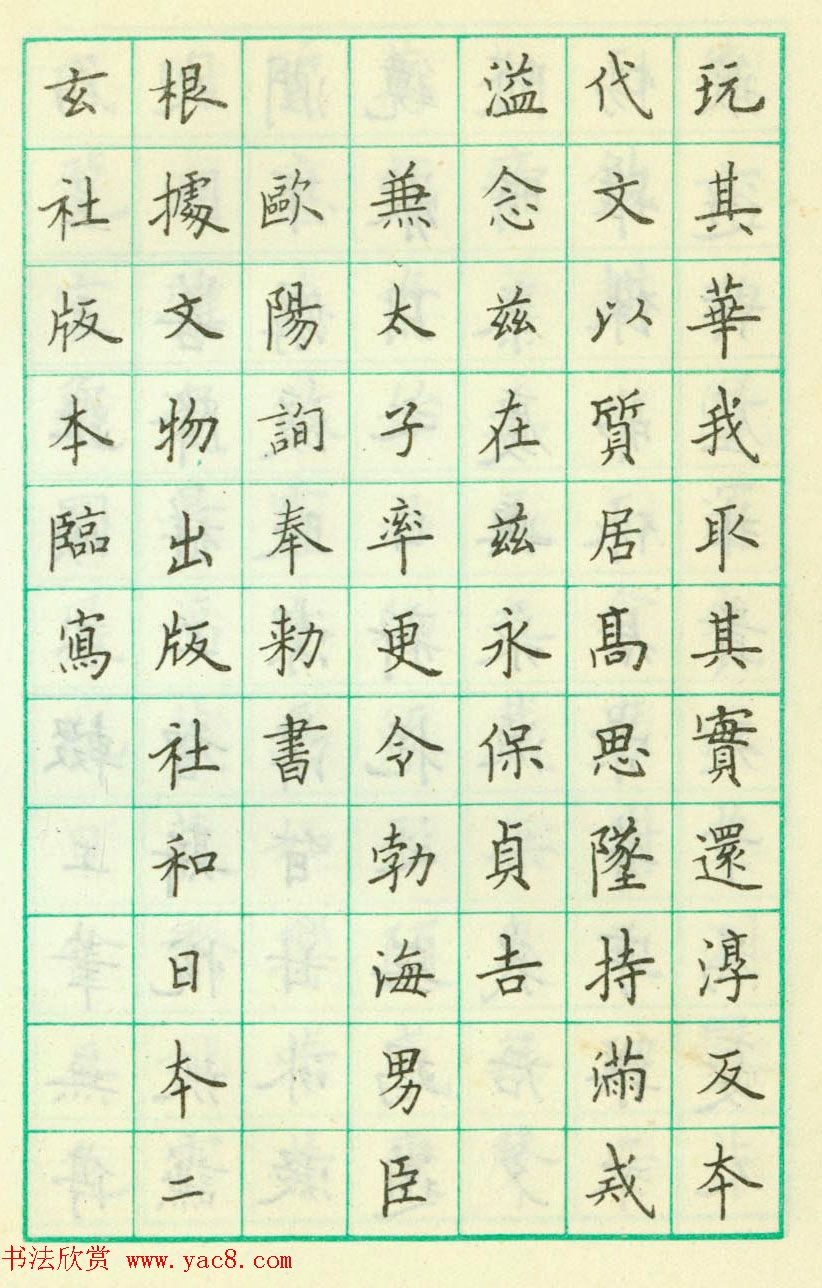 玩其華我取其實還淳反本
代文以質居高思墜持滿戒
溢念兹在兹永保貞吉
兼太子率更令勃海男臣
歐陽詢奉勅書
根據文物出版社和日本二
玄社版本臨寫
书法欣赏 www.yac8.com